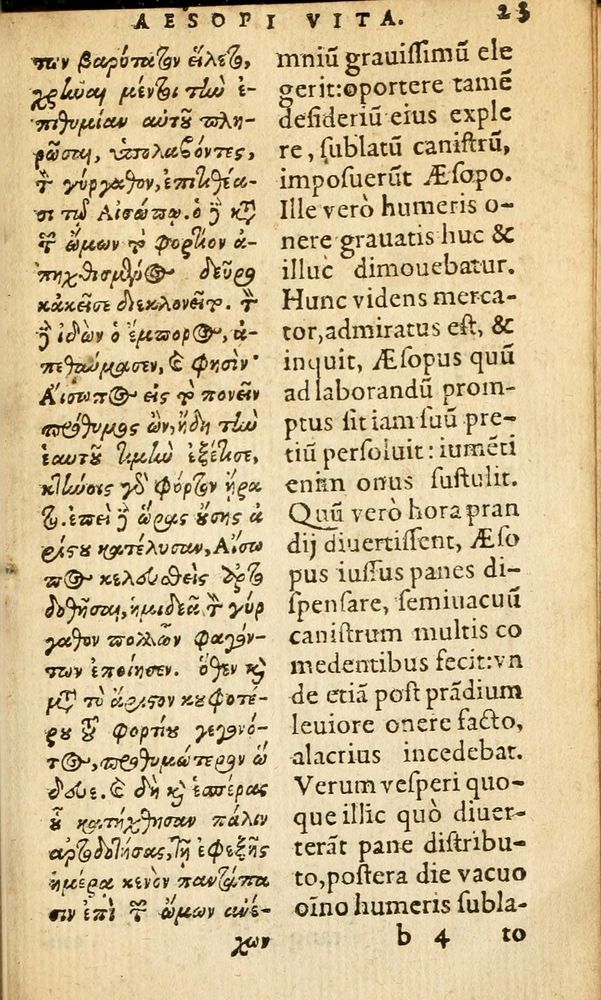 AESOPI VITA. 23
των βαρύτατον εἵλετο,
χρῆναι μέντοι τὴν ἐ-
πιθυμίαν αὐτοῦ πλη-
ρῶσαι, ὑπολαβόντες,
τὸν γύργαθον, ἐπιτιθέα-
σι τῷ Αἰσώπῳ. ὁ δὲ κατὰ
τῶν ὤμων τὸ φορτίον ἀ-
πηχθισμένος δεῦρο
κἀκεῖσε διεκλονεῖτο. τὸν
δὲ ἰδὼν ὁ ἔμπορος, ἀ-
πεθαύμασεν, καὶ φησίν·
Αἴσωπος εἰς τὸ πονεῖν
πρόθυμος ὢν, ἤδη τὴν
ἑαυτοῦ τιμὴν ἐξέτισε,
κτήνους γὰρ φόρτον ἤρα
το. ἐπεὶ δὲ ὥρας οὔσης ἀ
ρίστου κατέλυσαν, Αἴσω
πος κελευσθεὶς ἀρτο
δοτῆσαι, ἡμιδεᾶ τὸν γύρ
γαθον πολλῶν φαγόν-
των ἐποίησεν. ὅθεν καὶ
μετὰ τὸ ἄριστον κουφοτέ-
ρου τοῦ φορτίου γεγονό-
τος, προθυμώτερον ὥ
δευε. καὶ δὴ καὶ ἑσπέρας
οὗ κατήχθησαν πάλιν
ἀρτοδοτήσας, τῇ ἐφεξῆς
ἡμέρα κενὸν παντάπα
σιν ἐπὶ τῶν ὤμων ἀνέ-
χων
mniũ grauiſſimũ ele
gerit: oportere tamẽ
deſideriũ eius exple
re, ſublatũ caniſtrũ,
impoſuerũt Æſopo.
Ille verò humeris o-
nere grauatis huc &
illuc dimouebatur.
Hunc videns merca-
tor, admiratus eſt, &
inquit, Æſopus quũ
ad laborandũ prom-
ptus ſit iam ſuũ pre-
tiũ perſoluit: iumẽti
enim onus ſuſtulit.
Quũ verò hora pran
dij diuertiſſent, Æſo
pus iuſſus panes di-
ſpenſare, ſemiuacuũ
caniſtrum multis co
medentibus fecit: vn
de etiã poſt prãdium
leuiore onere facto,
alacrius incedebat.
Verum veſperi quo-
que illic quò diuer-
terãt pane diſtribu-
to, poſtera die vacuo
oĩno humeris ſubla-
b 4 to